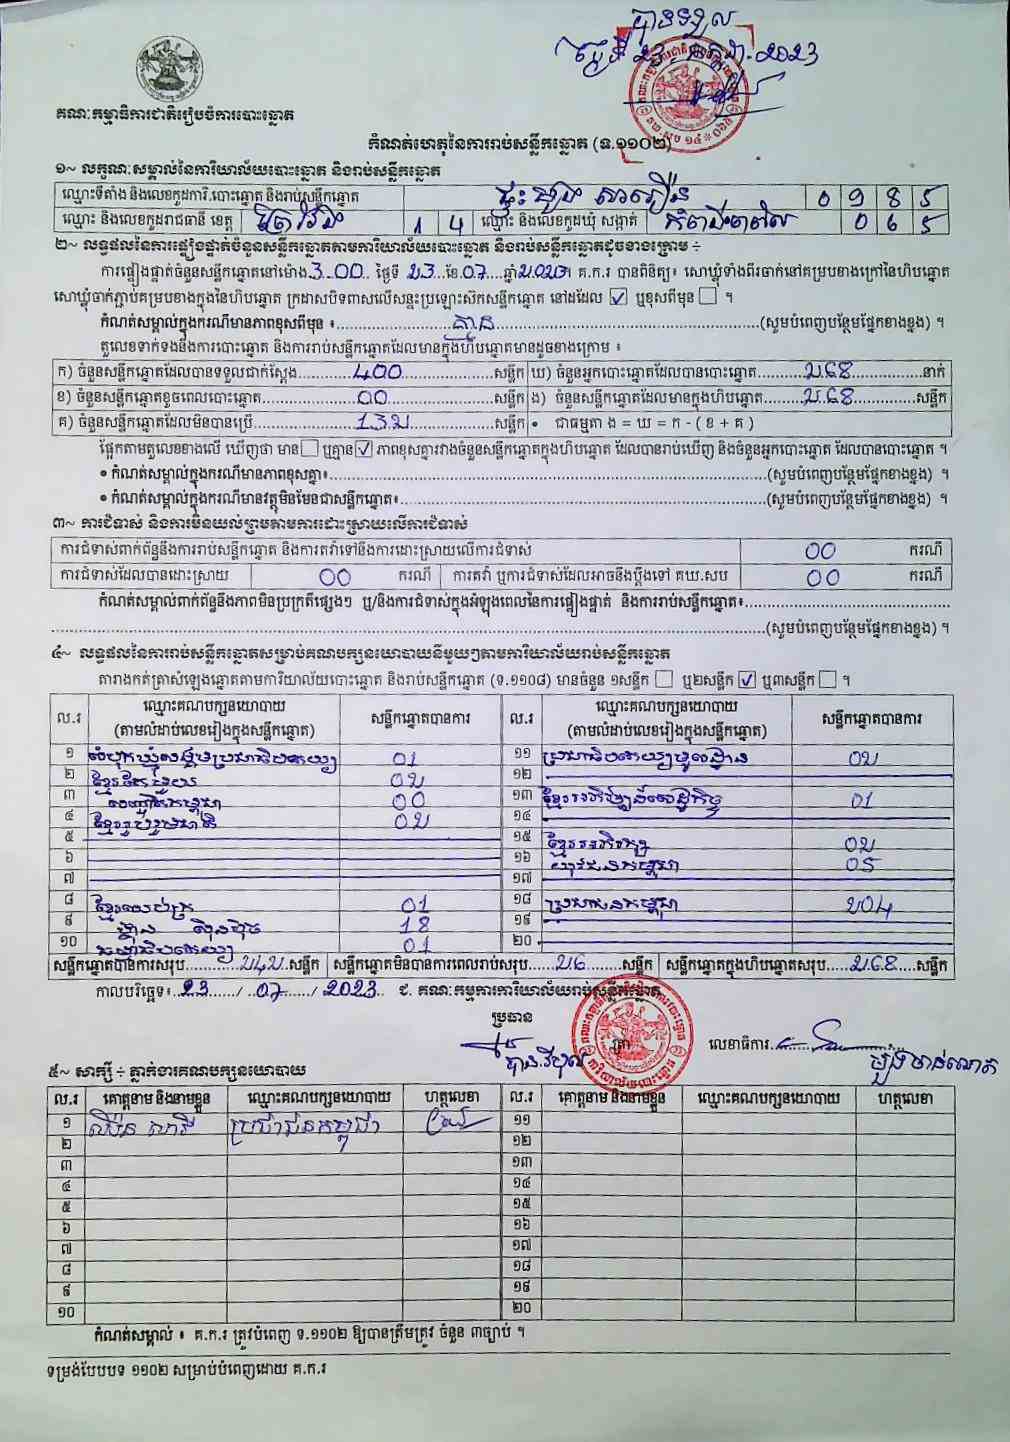 បានទទួល
ថ្ងៃទី 23 កក្កដា 2023
គណៈកម្មាធិការជាតិរៀបចំការបោះឆ្នោត
កំណត់ហេតុនៃការរាប់សន្លឹកឆ្នោត (ទ.១១០២)
១~ លក្ខណៈសម្គាល់នៃការិយាល័យបោះឆ្នោត និងរាប់សន្លឹកឆ្នោត
ឈ្មោះទីតាំង និងលេខកូដការិ.បោះឆ្នោត និងរាប់សន្លឹកឆ្នោត ផ្ទះ 0 9 8 5
ឈ្មោះ និងលេខកូដរាជធានី ខេត្ត ព្រៃវែង 1 4 ឈ្មោះ និងលេខកូដឃុំ សង្កាត់ 0 6 5
២~ លទ្ធផលនៃការផ្ទៀងផ្ទាត់ចំនួនសន្លឹកឆ្នោតតាមការិយាល័យបោះឆ្នោត និងរាប់សន្លឹកឆ្នោតដូចខាងក្រោម ÷
ការផ្ទៀងផ្ទាត់ចំនួនសន្លឹកឆ្នោតនៅម៉ោង 3.00 ថ្ងៃទី 23 ខែ 07 ឆ្នាំ 2023។ គ.ក.រ បានពិនិត្យ៖ សោឃ្លុំទាំងពីរចាក់នៅគម្របខាងក្រៅនៃហិបឆ្នោត
សោឃ្លុំចាក់ភ្ជាប់គម្របខាងក្នុងនៃហិបឆ្នោត ក្រដាសបិទពាសលើសន្ទះប្រឡោះស៊កសន្លឹកឆ្នោត នៅដដែល ☑ ឬខុសពីមុន ☐ ។
កំណត់សម្គាល់ក្នុងករណីមានភាពខុសពីមុន ៖ គ្មាន (សូមបំពេញបន្ថែមផ្នែកខាងខ្នង) ។
តួលេខទាក់ទងនឹងការបោះឆ្នោត និងការរាប់សន្លឹកឆ្នោតដែលមានក្នុងហិបឆ្នោតមានដូចខាងក្រោម ៖
ក) ចំនួនសន្លឹកឆ្នោតដែលបានទទួលជាក់ស្តែង 400 សន្លឹក ឃ) ចំនួនអ្នកបោះឆ្នោតដែលបានបោះឆ្នោត 268 នាក់
ខ) ចំនួនសន្លឹកឆ្នោតខូចពេលបោះឆ្នោត 00 សន្លឹក ង) ចំនួនសន្លឹកឆ្នោតដែលមានក្នុងហិបឆ្នោត 268 សន្លឹក
គ) ចំនួនសន្លឹកឆ្នោតដែលមិនបានប្រើ 132 សន្លឹក • ជាធម្មតា ង = ឃ = ក - ( ខ + គ )
ផ្អែកតាមតួលេខខាងលើ ឃើញថា មាន ☐ ឬគ្មាន ☑ ភាពខុសគ្នារវាងចំនួនសន្លឹកឆ្នោតក្នុងហិបឆ្នោត ដែលបានរាប់ឃើញ និងចំនួនអ្នកបោះឆ្នោត ដែលបានបោះឆ្នោត ។
• កំណត់សម្គាល់ក្នុងករណីមានភាពខុសគ្នា៖ (សូមបំពេញបន្ថែមផ្នែកខាងខ្នង) ។
• កំណត់សម្គាល់ក្នុងករណីមានវត្ថុមិនមែនជាសន្លឹកឆ្នោត៖ (សូមបំពេញបន្ថែមផ្នែកខាងខ្នង) ។
៣~ ការជំទាស់ និងការមិនយល់ព្រមតាមការដោះស្រាយលើការជំទាស់
ការជំទាស់ពាក់ព័ន្ធនឹងការរាប់សន្លឹកឆ្នោត និងការតវ៉ាទៅនឹងការដោះស្រាយលើការជំទាស់ 00 ករណី
ការជំទាស់ដែលបានដោះស្រាយ 00 ករណី ការតវ៉ា ឬការជំទាស់ដែលអាចនឹងប្តឹងទៅ គឃ.សប 00 ករណី
កំណត់សម្គាល់ពាក់ព័ន្ធនឹងភាពមិនប្រក្រតីផ្សេងៗ ឬ/និងការជំទាស់ក្នុងអំឡុងពេលនៃការផ្ទៀងផ្ទាត់ និងការរាប់សន្លឹកឆ្នោត៖
(សូមបំពេញបន្ថែមផ្នែកខាងខ្នង) ។
៤~ លទ្ធផលនៃការរាប់សន្លឹកឆ្នោតសម្រាប់គណបក្សនយោបាយនីមួយៗតាមការិយាល័យរាប់សន្លឹកឆ្នោត
តារាងកត់ត្រាសំឡេងឆ្នោតតាមការិយាល័យបោះឆ្នោត និងរាប់សន្លឹកឆ្នោត (ទ.១១០៨) មានចំនួន ១សន្លឹក ☐ ឬ២សន្លឹក ☑ ឬ៣សន្លឹក ☐ ។
ល.រ ឈ្មោះគណបក្សនយោបាយ (តាមលំដាប់លេខរៀងក្នុងសន្លឹកឆ្នោត) សន្លឹកឆ្នោតបានការ ល.រ ឈ្មោះគណបក្សនយោបាយ (តាមលំដាប់លេខរៀងក្នុងសន្លឹកឆ្នោត) សន្លឹកឆ្នោតបានការ
១ សំបុកឃ្មុំសង្គមប្រជាធិបតេយ្យ 01 ១១ ប្រជាធិបតេយ្យមូលដ្ឋាន 02
២ ខ្មែរតែមួយ 02 ១២
៣ សញ្ជាតិកម្ពុជា 00 ១៣ ខ្មែរអភិវឌ្ឍន៍សេដ្ឋកិច្ច 01
៤ ខ្មែររួបរួមជាតិ 02 ១៤
៥ ១៥ ខ្មែរអភិរក្ស 02
៦ ១៦ យុវជនកម្ពុជា 05
៧ ១៧
៨ ខ្មែរឈប់ក្រ 01 ១៨ ប្រជាជនកម្ពុជា 204
៩ ហ្វ៊ុនស៊ិនប៉ិច 18 ១៩
១០ ធម្មាធិបតេយ្យ 01 ២០
សន្លឹកឆ្នោតបានការសរុប 242 សន្លឹក សន្លឹកឆ្នោតមិនបានការពេលរាប់សរុប 26 សន្លឹក សន្លឹកឆ្នោតក្នុងហិបឆ្នោតសរុប 268 សន្លឹក
កាលបរិច្ឆេទ៖ 23 / 07 / 2023 ជ. គណៈកម្មការការិយាល័យរាប់សន្លឹកឆ្នោត
ប្រធាន
ត្រា លេខាធិការ
៥~ សាក្សី ÷ ភ្នាក់ងារគណបក្សនយោបាយ
ល.រ គោត្តនាម និងនាមខ្លួន ឈ្មោះគណបក្សនយោបាយ ហត្ថលេខា ល.រ គោត្តនាម និងនាមខ្លួន ឈ្មោះគណបក្សនយោបាយ ហត្ថលេខា
១ ប្រជាជនកម្ពុជា ១១
២ ១២
៣ ១៣
៤ ១៤
៥ ១៥
៦ ១៦
៧ ១៧
៨ ១៨
៩ ១៩
១០ ២០
កំណត់សម្គាល់ ៖ គ.ក.រ ត្រូវបំពេញ ទ.១១០២ ឱ្យបានត្រឹមត្រូវ ចំនួន ៣ច្បាប់ ។
ទម្រង់បែបបទ ១១០២ សម្រាប់បំពេញដោយ គ.ក.រ